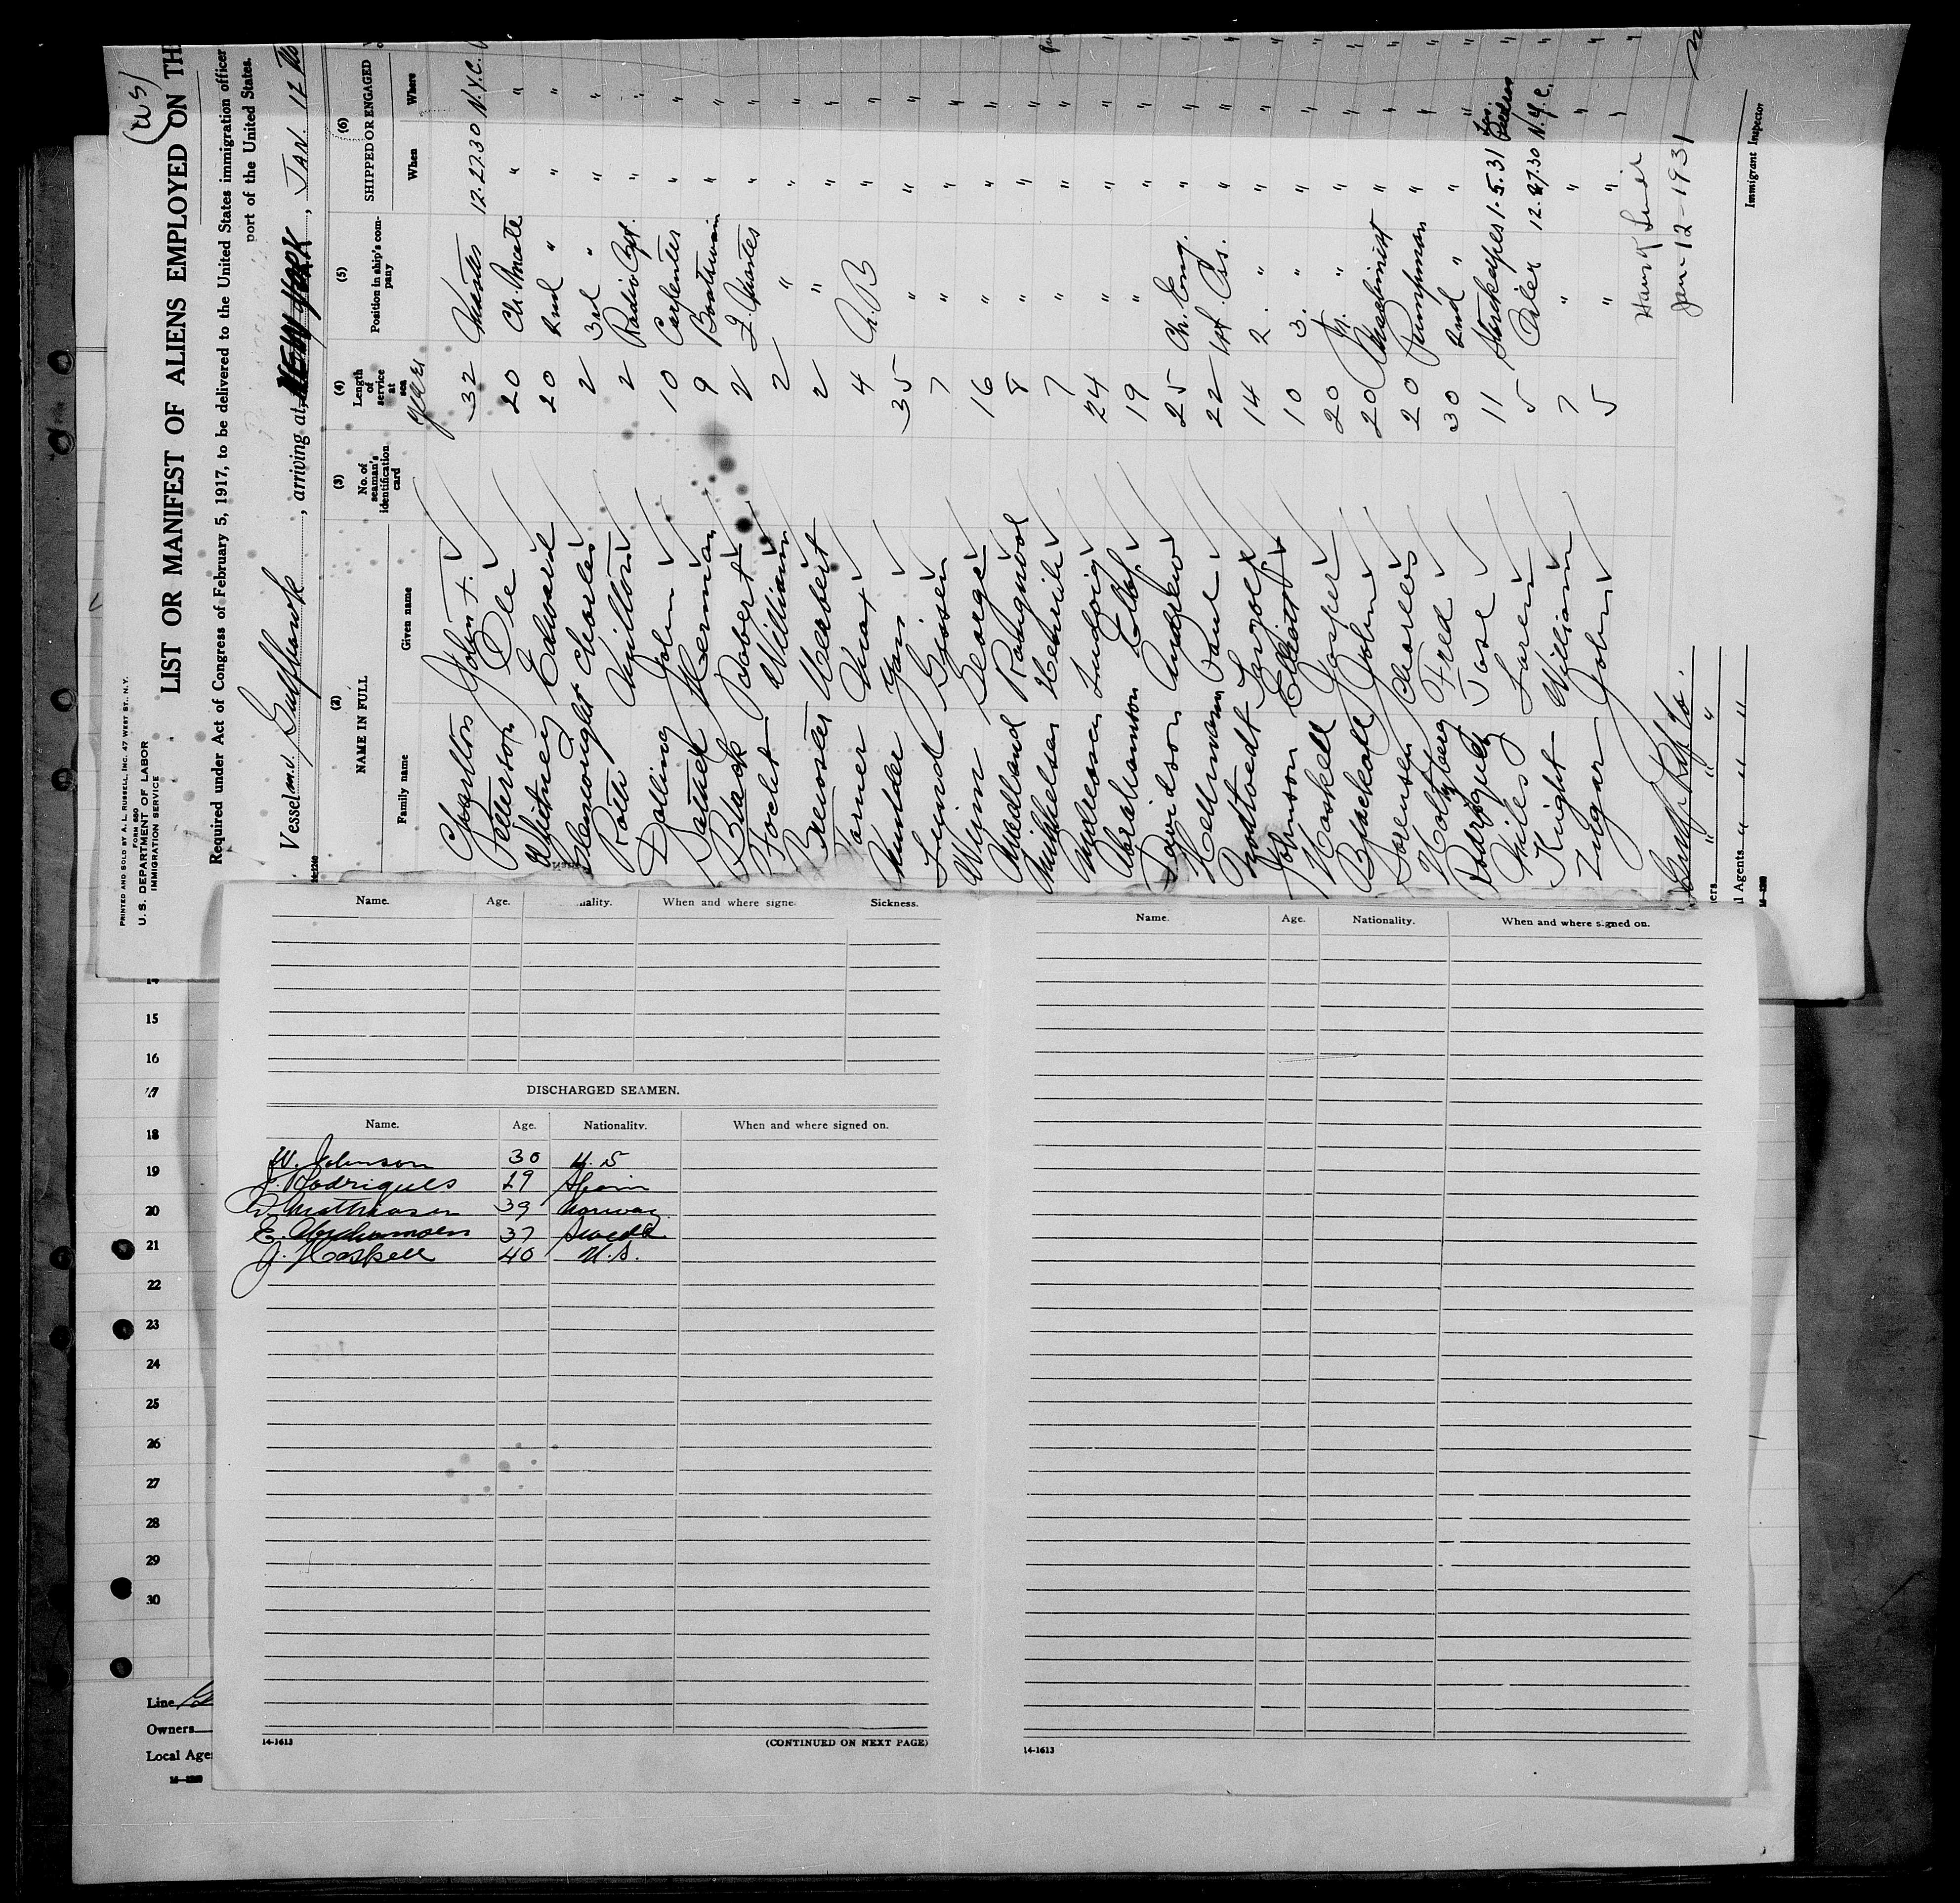 (WS)
PRINTED AND SOLD BY A. L. RUSSELL, INC. 47 WEST ST., N.Y.
FORM 680
U. S. DEPARTMENT OF LABOR
IMMIGRATION SERVICE
LIST OR MANIFEST OF ALIENS EMPLOYED ON TH
Required under Act of Congress of February 5, 1917, to be delivered to the United States immigration officer
port of the United States.
Vessel m.s. Gulfhawk, arriving at NEW YORK, JAN. 12
(2) (3) (4) (5) (6)
NAME IN FULL No. of seaman's identification card Length of service at sea Position in ship's company SHIPPED OR ENGAGED
Family name Given name When Where
years
John F. 32 Master 12.27.30 N.Y.C.
Petterson Ole 20 Ch. Mate " "
Whitney Edward 20 2nd " " "
Charles 2 3rd " " "
Roth Milton 2 Radio Opt. " "
Dolling John 10 Carpenter " "
Herman 9 Boatswain " "
Black Robert 2 Q. Master " "
Focht William 2 " " "
Brewster Herbert 2 " " "
Max 4 A.B " "
Jan 35 " " "
Lund 7 " " "
Winn George 16 " " "
Miedland Rangwood 8 " " "
Mikkelsen Henrik 7 " " "
Ludvig 24 " " "
Abrahamson 19 " " "
Davidson Andrew 25 Ch. Eng. " "
Hellmann Paul 22 1st. Ass. " "
14 2. " " "
Johnson 10 3. " " "
Haskell Jasper 20 " " "
John 20 Machinist " "
Sorensen Charles 20 Pumpman " "
Holmberg Fred 30 2nd " " "
Rodriguez Jose 11 Storekeeper 1.5.31
Miles Loren 5 Oiler 12.27.30 N.Y.C.
Knight William 7 " " "
Zugar John 5 " " "
Jan-12-1931
Immigrant Inspector
ners " " "
l Agents " " "
14—1240
Name. Age. ality. When and where signe Sickness.
Name. Age. Nationality. When and where signed on.
DISCHARGED SEAMEN.
Name. Age. Nationality. When and where signed on.
W. Johnson 30 U.S
J. Rodrigues 29 Spain
Mathiasen 39 Norway
E. Abrahamsen 37 Swede
J. Haskell 40 U.S.
14-1613 (CONTINUED ON NEXT PAGE)
14-1613
15
16
17
18
19
20
21
22
23
24
25
26
27
28
29
30
Line
Owners
Local Age